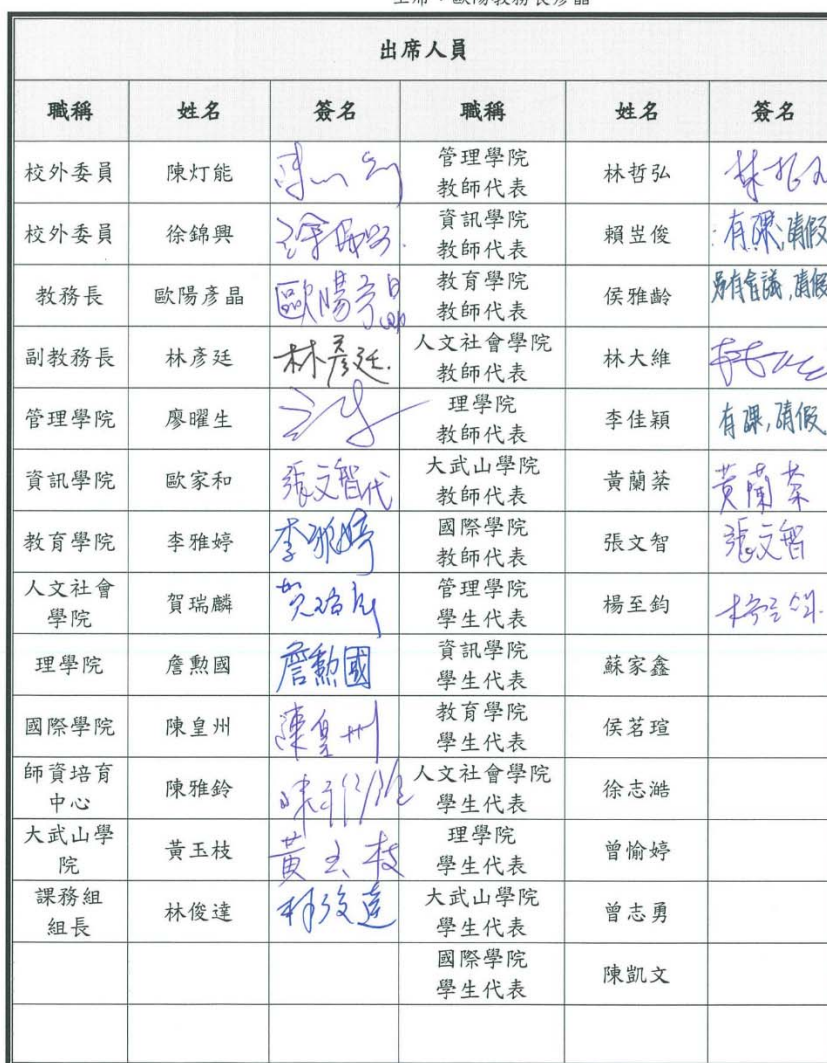 主席：歐陽教務長彥晶
出席人員
職稱 姓名 簽名 職稱 姓名 簽名
校外委員 陳灯能 管理學院 教師代表 林哲弘
校外委員 徐錦興 資訊學院 教師代表 賴岦俊 有課,請假
教務長 歐陽彥晶 歐陽彥晶 教育學院 教師代表 侯雅齡 另有會議,請假
副教務長 林彥廷 林彥廷 人文社會學院 教師代表 林大維
管理學院 廖曜生 理學院 教師代表 李佳穎 有課,請假
資訊學院 歐家和 張文智代 大武山學院 教師代表 黃蘭棻 黃蘭棻
教育學院 李雅婷 李雅婷 國際學院 教師代表 張文智 張文智
人文社會學院 賀瑞麟 管理學院 學生代表 楊至鈞
理學院 詹勲國 詹勲國 資訊學院 學生代表 蘇家鑫
國際學院 陳皇州 陳皇州 教育學院 學生代表 侯茗瑄
師資培育中心 陳雅鈴 人文社會學院 學生代表 徐志澔
大武山學院 黃玉枝 黃玉枝 理學院 學生代表 曾愉婷
課務組組長 林俊達 林俊達 大武山學院 學生代表 曾志勇
國際學院 學生代表 陳凱文